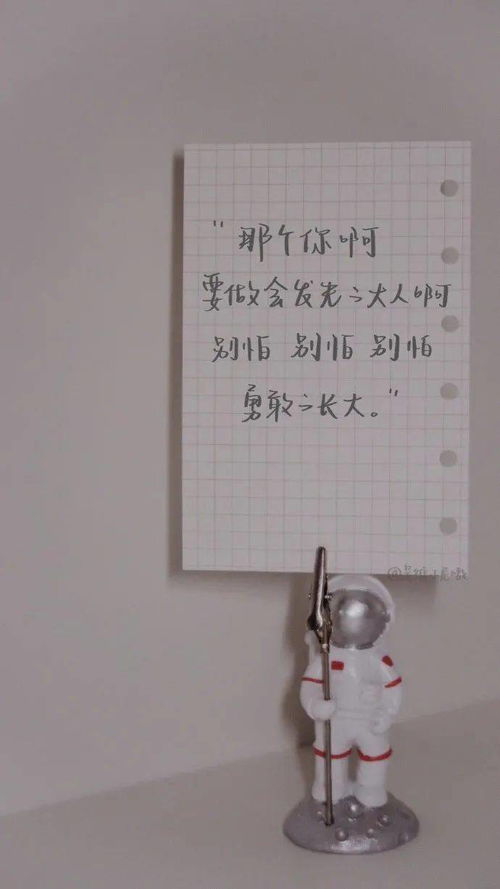 "那个你啊
要做会发光之大人啊
别怕 别怕 别怕
勇敢之长大。"